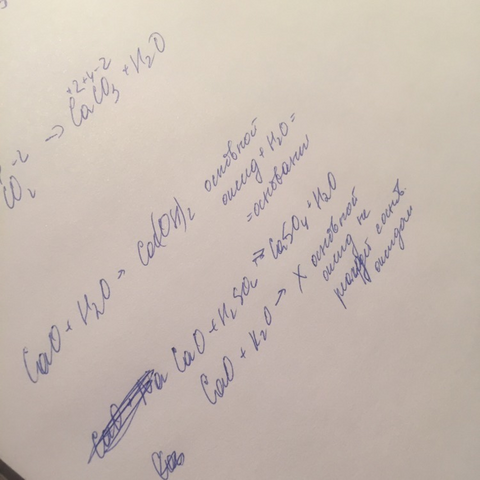 +2+4-2
-2
CO2 → CaCO3 + H2O
CaO + H2O → Ca(OH)2 основной
оксид + H2O =
= основани
CaO + H2SO4 → CaSO4 + H2O
CaO + K2O → X основной
оксид не
оксидом